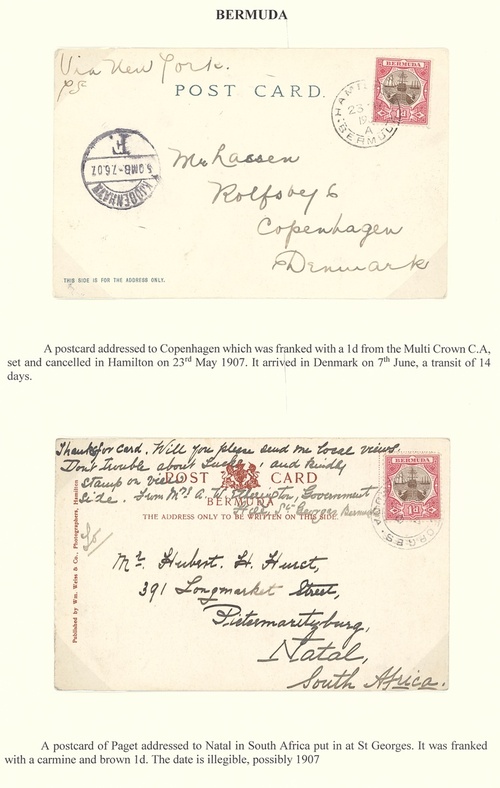 BERMUDA
Via New York.
POST CARD.
BERMUDA
1d
HAMIL
23
19
A
BERMU
KJØBENHAVN
OMB. 7.6.07.
F.
Mr Lassen
Rolfsvej 6
Copenhagen
Denmark
THIS SIDE IS FOR THE ADDRESS ONLY.
A postcard addressed to Copenhagen which was franked with a 1d from the Multi Crown C.A,
set and cancelled in Hamilton on 23rd May 1907. It arrived in Denmark on 7th June, a transit of 14
days.
Thanks for card. Will you please send me local views.
Don't trouble about , and kindly
stamp on view
side. From Mrs A. W. , Government
St Georges Bermuda
POST CARD
BERMUDA
THE ADDRESS ONLY TO BE WRITTEN ON THIS SIDE.
BERMUDA
1d
Published by Wm. Weiss & Co., Photographers, Hamilton
Mr. Hubert. H. Hurst,
391 Longmarket Street,
Pietermaritzburg,
Natal,
South Africa.
A postcard of Paget addressed to Natal in South Africa put in at St Georges. It was franked
with a carmine and brown 1d. The date is illegible, possibly 1907